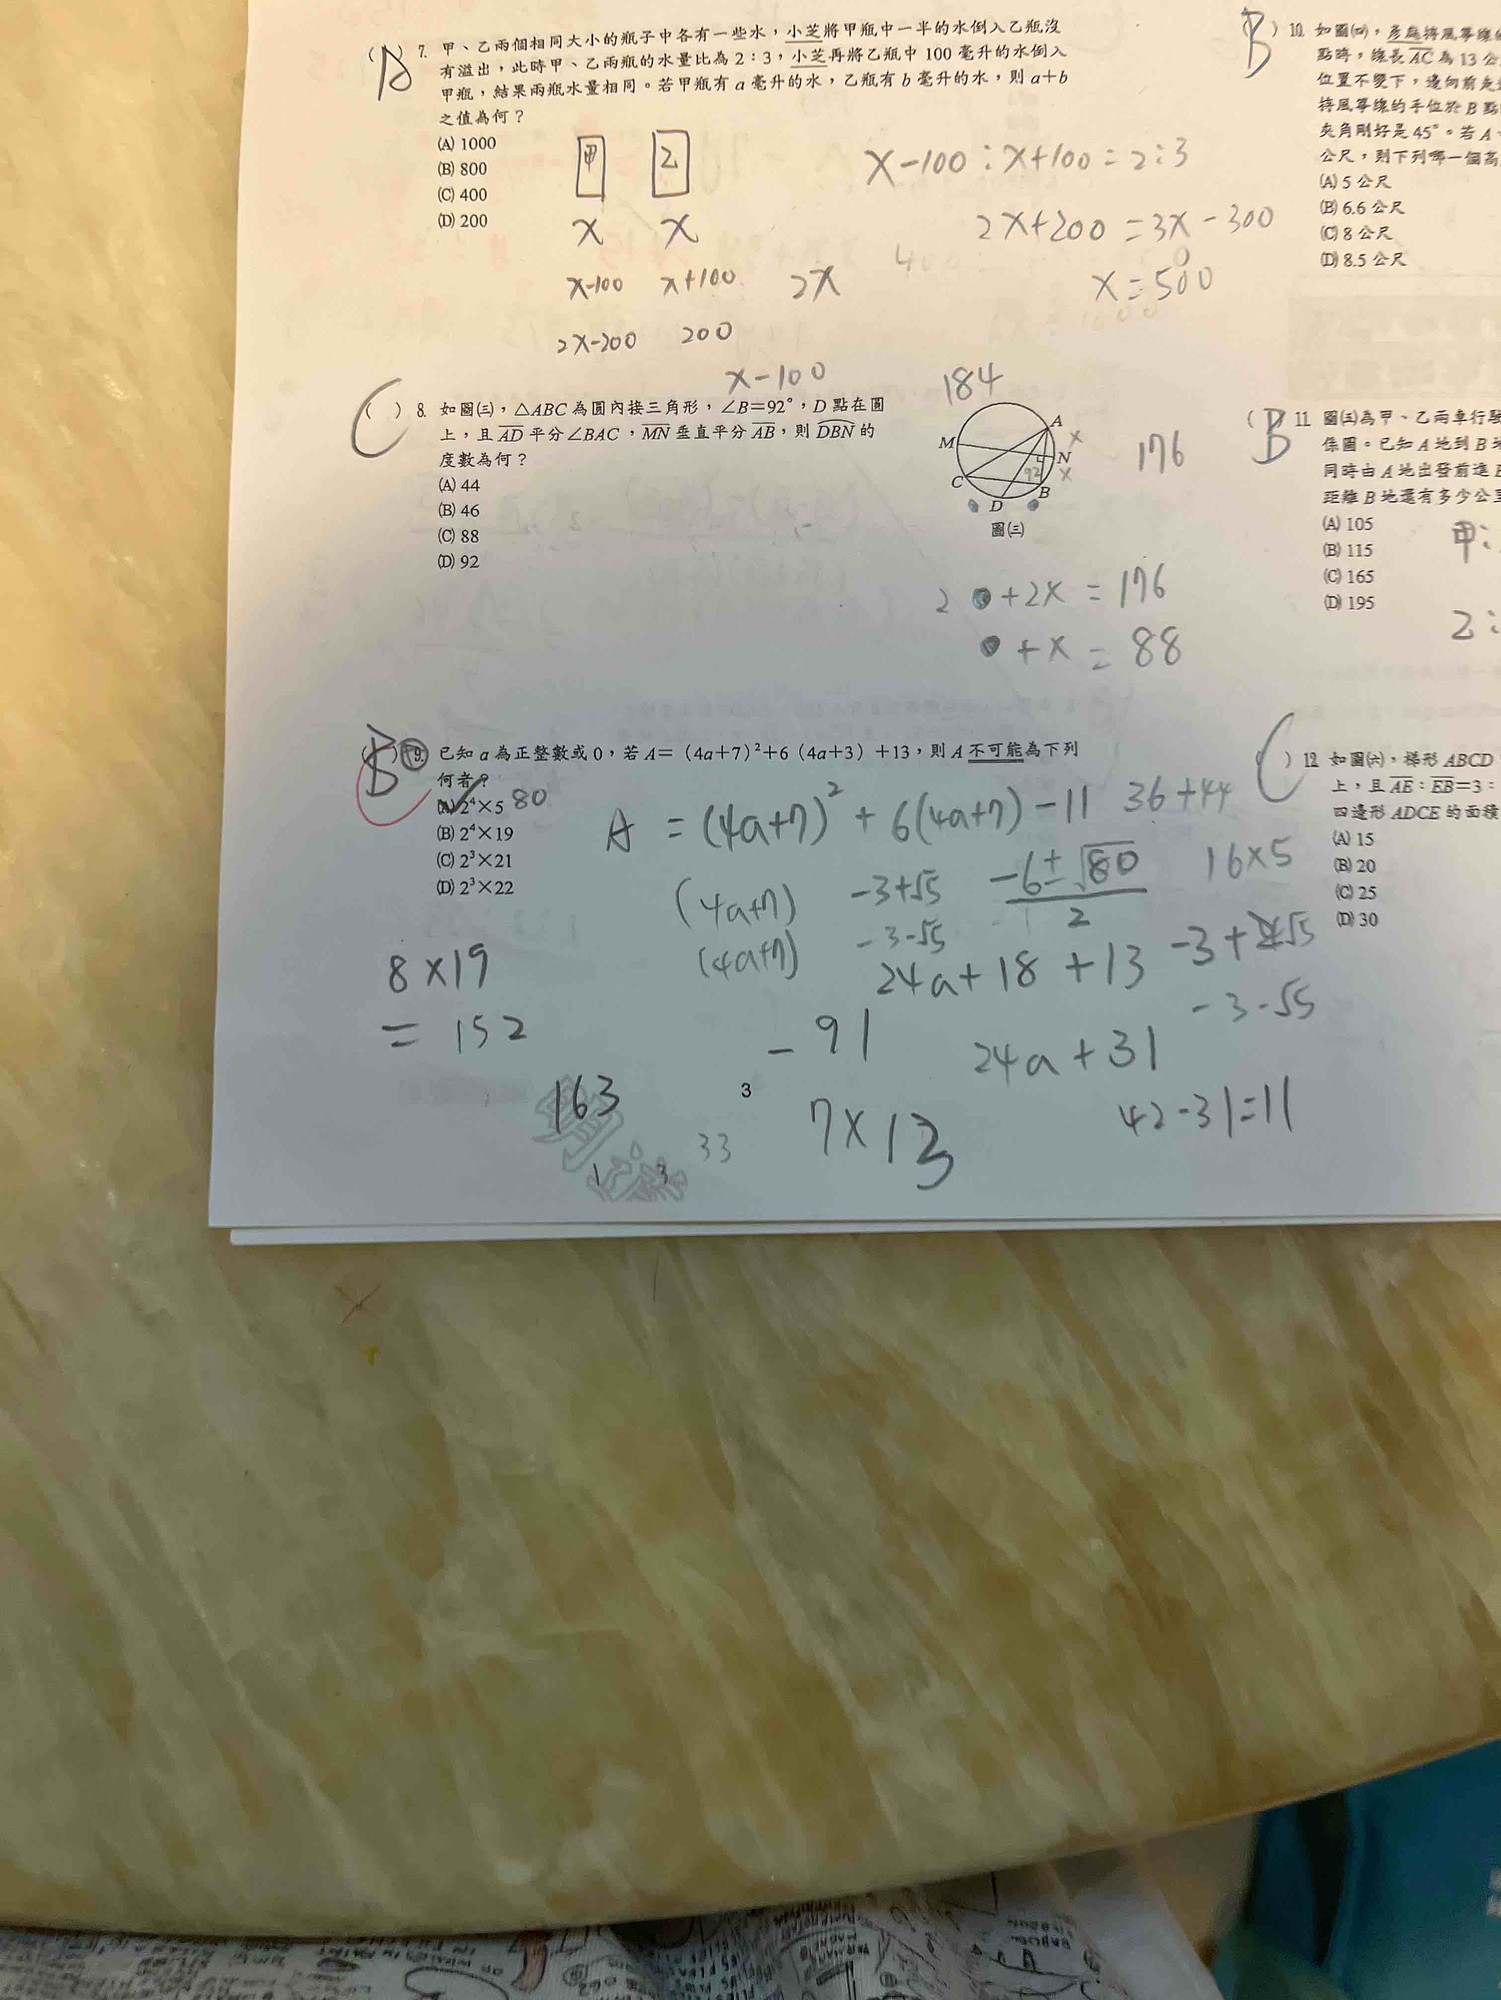 A
( ) 7. 甲、乙兩個相同大小的瓶子中各有一些水,小芝將甲瓶中一半的水倒入乙瓶沒
有溢出,此時甲、乙兩瓶的水量比為 2:3,小芝再將乙瓶中 100 毫升的水倒入
甲瓶,結果兩瓶水量相同。若甲瓶有 a 毫升的水,乙瓶有 b 毫升的水,則 a+b
之值為何?
(A) 1000
(B) 800
(C) 400
(D) 200
甲 乙
x x
x-100 x+100 2x
2x-200 200
x-100
x-100:x+100=2:3
2x+200=3x-300
400
x=500
C
( ) 8. 如圖㈢,△ABC 為圓內接三角形,∠B=92°,D 點在圓
上,且 AD 平分∠BAC,MN 垂直平分 AB,則 DBN 的
度數為何?
(A) 44
(B) 46
(C) 88
(D) 92
184
A
M
N
C
92
B
D
x
x
圖㈢
176
2 ●+2x = 176
●+x = 88
B
( ) 9. 已知 a 為正整數或 0,若 A=(4a+7)²+6(4a+3)+13,則 A 不可能為下列
何者?
(A) 2⁴×5 80
(B) 2⁴×19
(C) 2³×21
(D) 2³×22
A = (4a+7)²+6(4a+7)-11 36+44
(4a+7) -3+√5 -6±√80 16×5
2
(4a+7) -3-√5
24a+18+13
-3-√5
8×19
=152
-91
24a+31
163
7×13
42-31=11
33
1 3
3
B
) 10. 如圖㈣,彥庭將風箏線
點時,線長 AC 為 13 公
位置不變下,邊向前走
將風箏線的手位於 B 點
夾角剛好是 45°。若 A、
公尺,則下列哪一個高
(A) 5 公尺
(B) 6.6 公尺
(C) 8 公尺
(D) 8.5 公尺
B
( ) 11. 圖㈤為甲、乙兩車行駛
係圖。已知 A 地到 B 地
同時由 A 地出發前進
距離 B 地還有多少公里
(A) 105
(B) 115
(C) 165
(D) 195
甲:
乙:
C
) 12. 如圖㈥,梯形 ABCD
上,且 AE:EB=3:
四邊形 ADCE 的面積
(A) 15
(B) 20
(C) 25
(D) 30